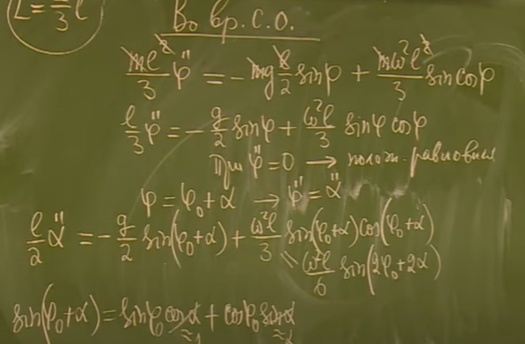 L = 2/3 l
Во вр. с.о.
ml²/3 φ̈ = -mg l/2 sinφ + mω²l²/3 sinφ cosφ
l/3 φ̈ = -g/2 sinφ + ω²l/3 sinφ cosφ
При φ̈ = 0 → полож. равновесия
φ = φ₀ + α → φ̈ = α̈
l/2 α̈ = -g/2 sin(φ₀+α) + ω²l/3 sin(φ₀+α)cos(φ₀+α)
ω²l/6 sin(2φ₀+2α)
sin(φ₀+α) = sinφ₀ cosα + cosφ₀ sinα